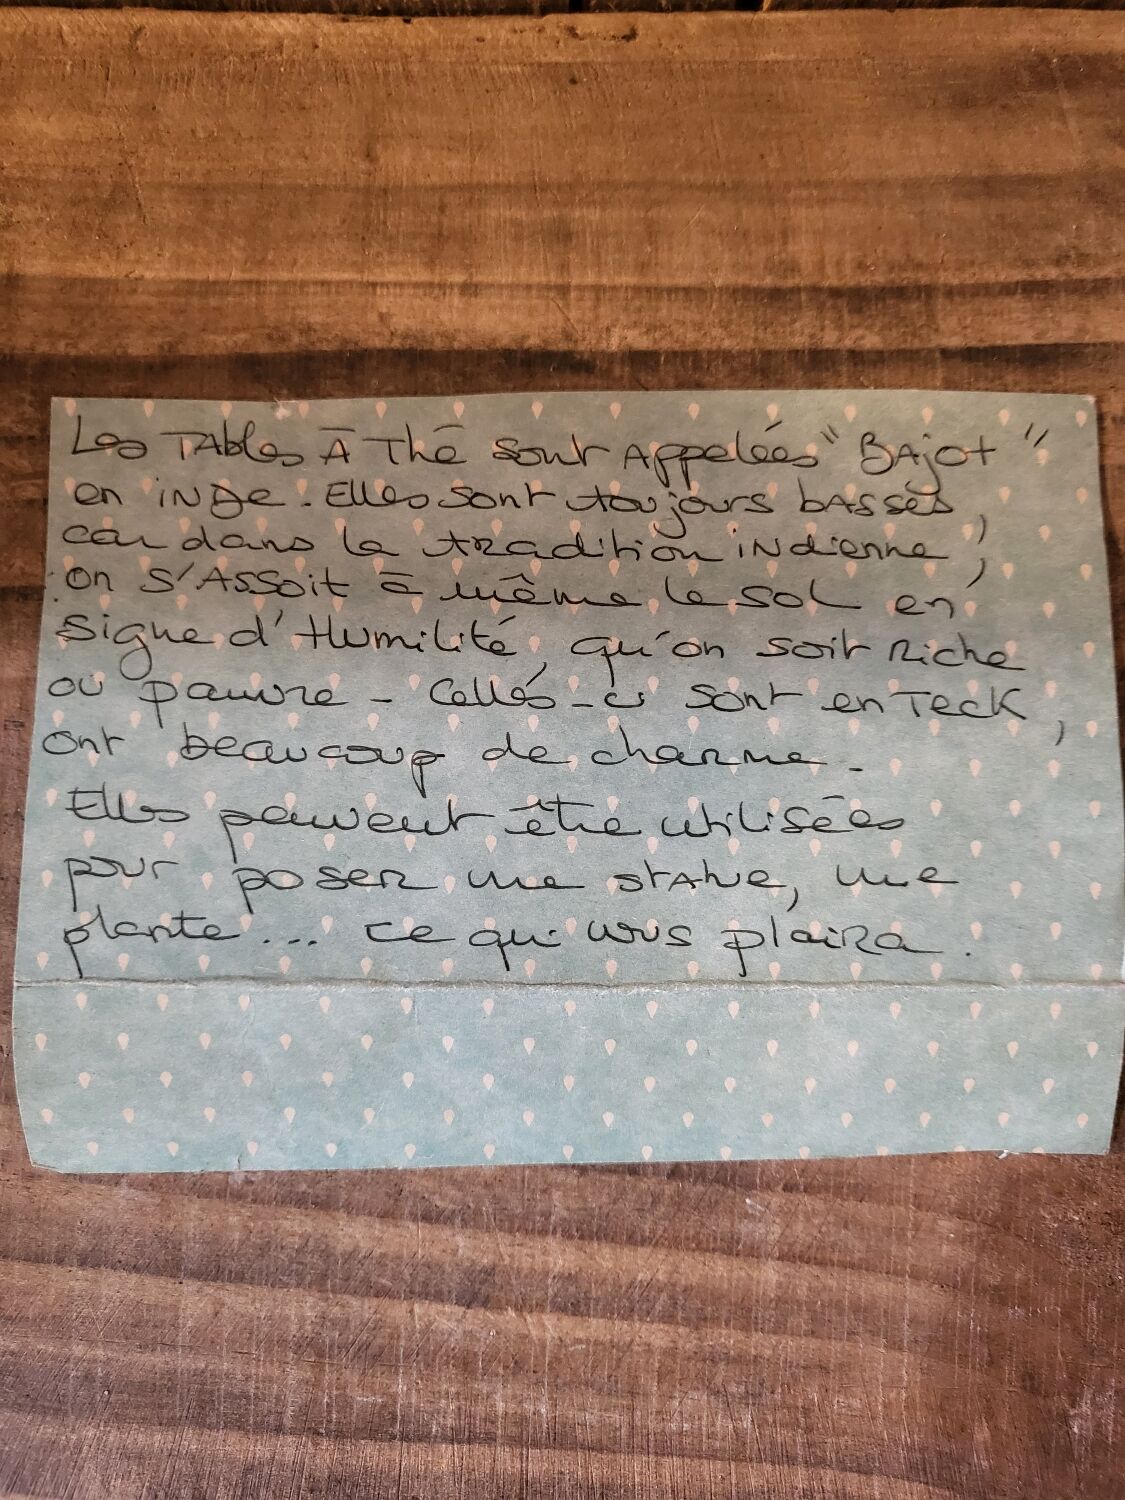 Les TAbles À Thé sont Appelées "BAjot"
en iNDe. Elles sont toujours bAsses,
car dans la tradition iNdienne,
on s'Assoit à même le soL en
signe d'Humilité, qu'on soit Riche
ou pauvre - Celles-ci sont en TecK,
ont beaucoup de charme.
Elles peuvent être utilisées
pour poseR une stAtue, une
plante... ce qui vous plaiRa.